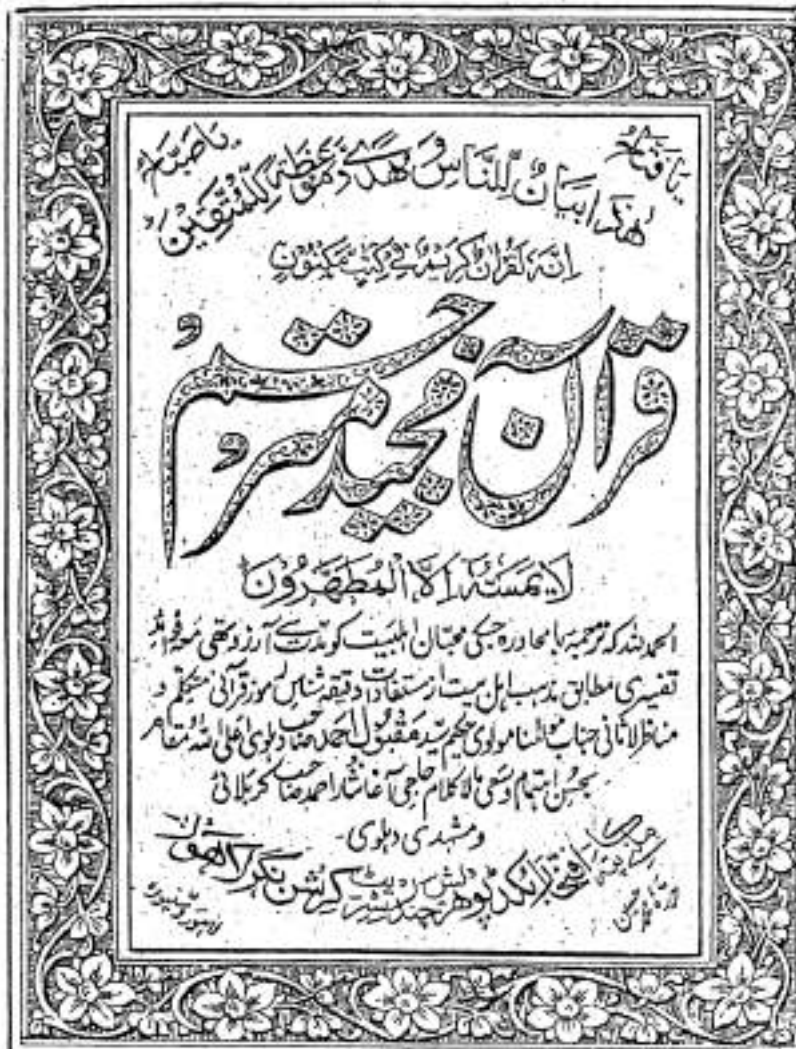 یا فتاح
یا صبّاح
هٰذَا بَيَانٌ لِّلنَّاسِ وَهُدًى وَّمَوْعِظَةٌ لِّلْمُتَّقِيْنَ
اِنَّهٗ لَقُرْاٰنٌ كَرِيْمٌ فِیْ كِتٰبٍ مَّكْنُوْنٍ
قرآن مجید مترجم
لَا يَمَسُّهٗ اِلَّا الْمُطَهَّرُوْنَ
الحمد للہ کہ ترجمہ بامحاورہ جسکی محبان اہلبیت کو مدت سے آرزو تھی معہ فوائد
تفسیری مطابق مذہب اہل بیت از مستفادات دقیقہ شناس رموز قرآنی متکلم و
مناظر لاثانی جناب مولٰنا مولوی حکیم سید مقبول احمد صاحب دہلوی اعلی اللہ مقامہ
بحسن اہتمام وسعی مالا کلام حاجی آغا نثار احمد صاحب کربلائی
ومشہدی دہلوی۔
افتخار بکڈپو ہرچند سٹریٹ کرشن نگر لاہور